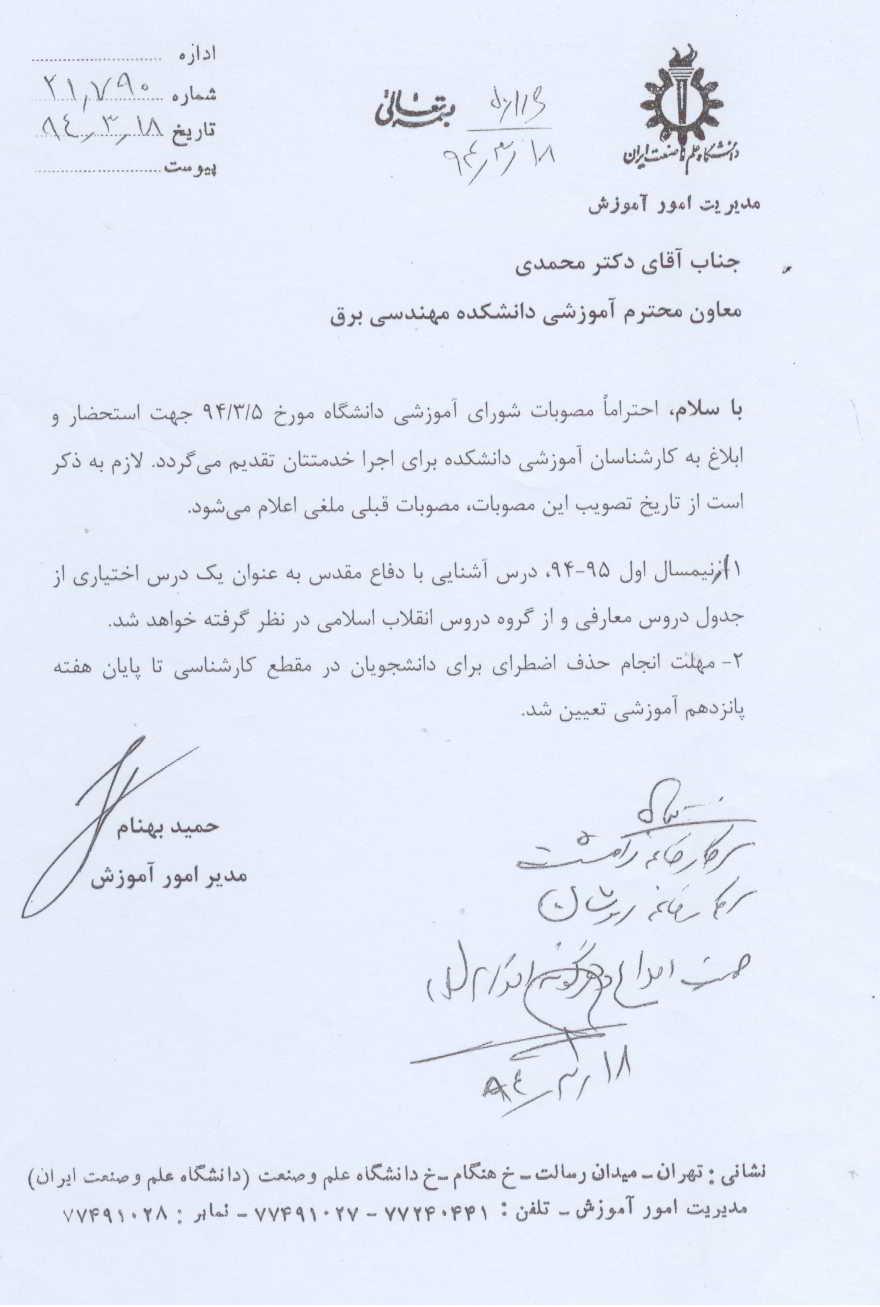 اداره
شماره ۲۱,۷۹۰
تاریخ ۹۴,۳,۱۸
پیوست
بسمه تعالی
۹۴,۳,۱۸
دانشگاه علم و صنعت ایران
مدیریت امور آموزش
جناب آقای دکتر محمدی
معاون محترم آموزشی دانشکده مهندسی برق
با سلام، احتراماً مصوبات شورای آموزشی دانشگاه مورخ ۹۴/۳/۵ جهت استحضار و
ابلاغ به کارشناسان آموزشی دانشکده برای اجرا خدمتتان تقدیم می‌گردد. لازم به ذکر
است از تاریخ تصویب این مصوبات، مصوبات قبلی ملغی اعلام می‌شود.
۱ ازنیمسال اول ۹۵-۹۴، درس آشنایی با دفاع مقدس به عنوان یک درس اختیاری از
جدول دروس معارفی و از گروه دروس انقلاب اسلامی در نظر گرفته خواهد شد.
۲- مهلت انجام حذف اضطرای برای دانشجویان در مقطع کارشناسی تا پایان هفته
پانزدهم آموزشی تعیین شد.
حمید بهنام
مدیر امور آموزش
سرکار خانم
سرکار خانم
جهت
۹۴,۳,۱۸
نشانی : تهران ــ میدان رسالت ــ خ هنگام ــ خ دانشگاه علم و صنعت (دانشگاه علم و صنعت ایران)
مدیریت امور آموزش ــ تلفن : ۷۷۲۴۰۴۴۱ – ۷۷۴۹۱۰۲۷ – نمابر : ۷۷۴۹۱۰۲۸